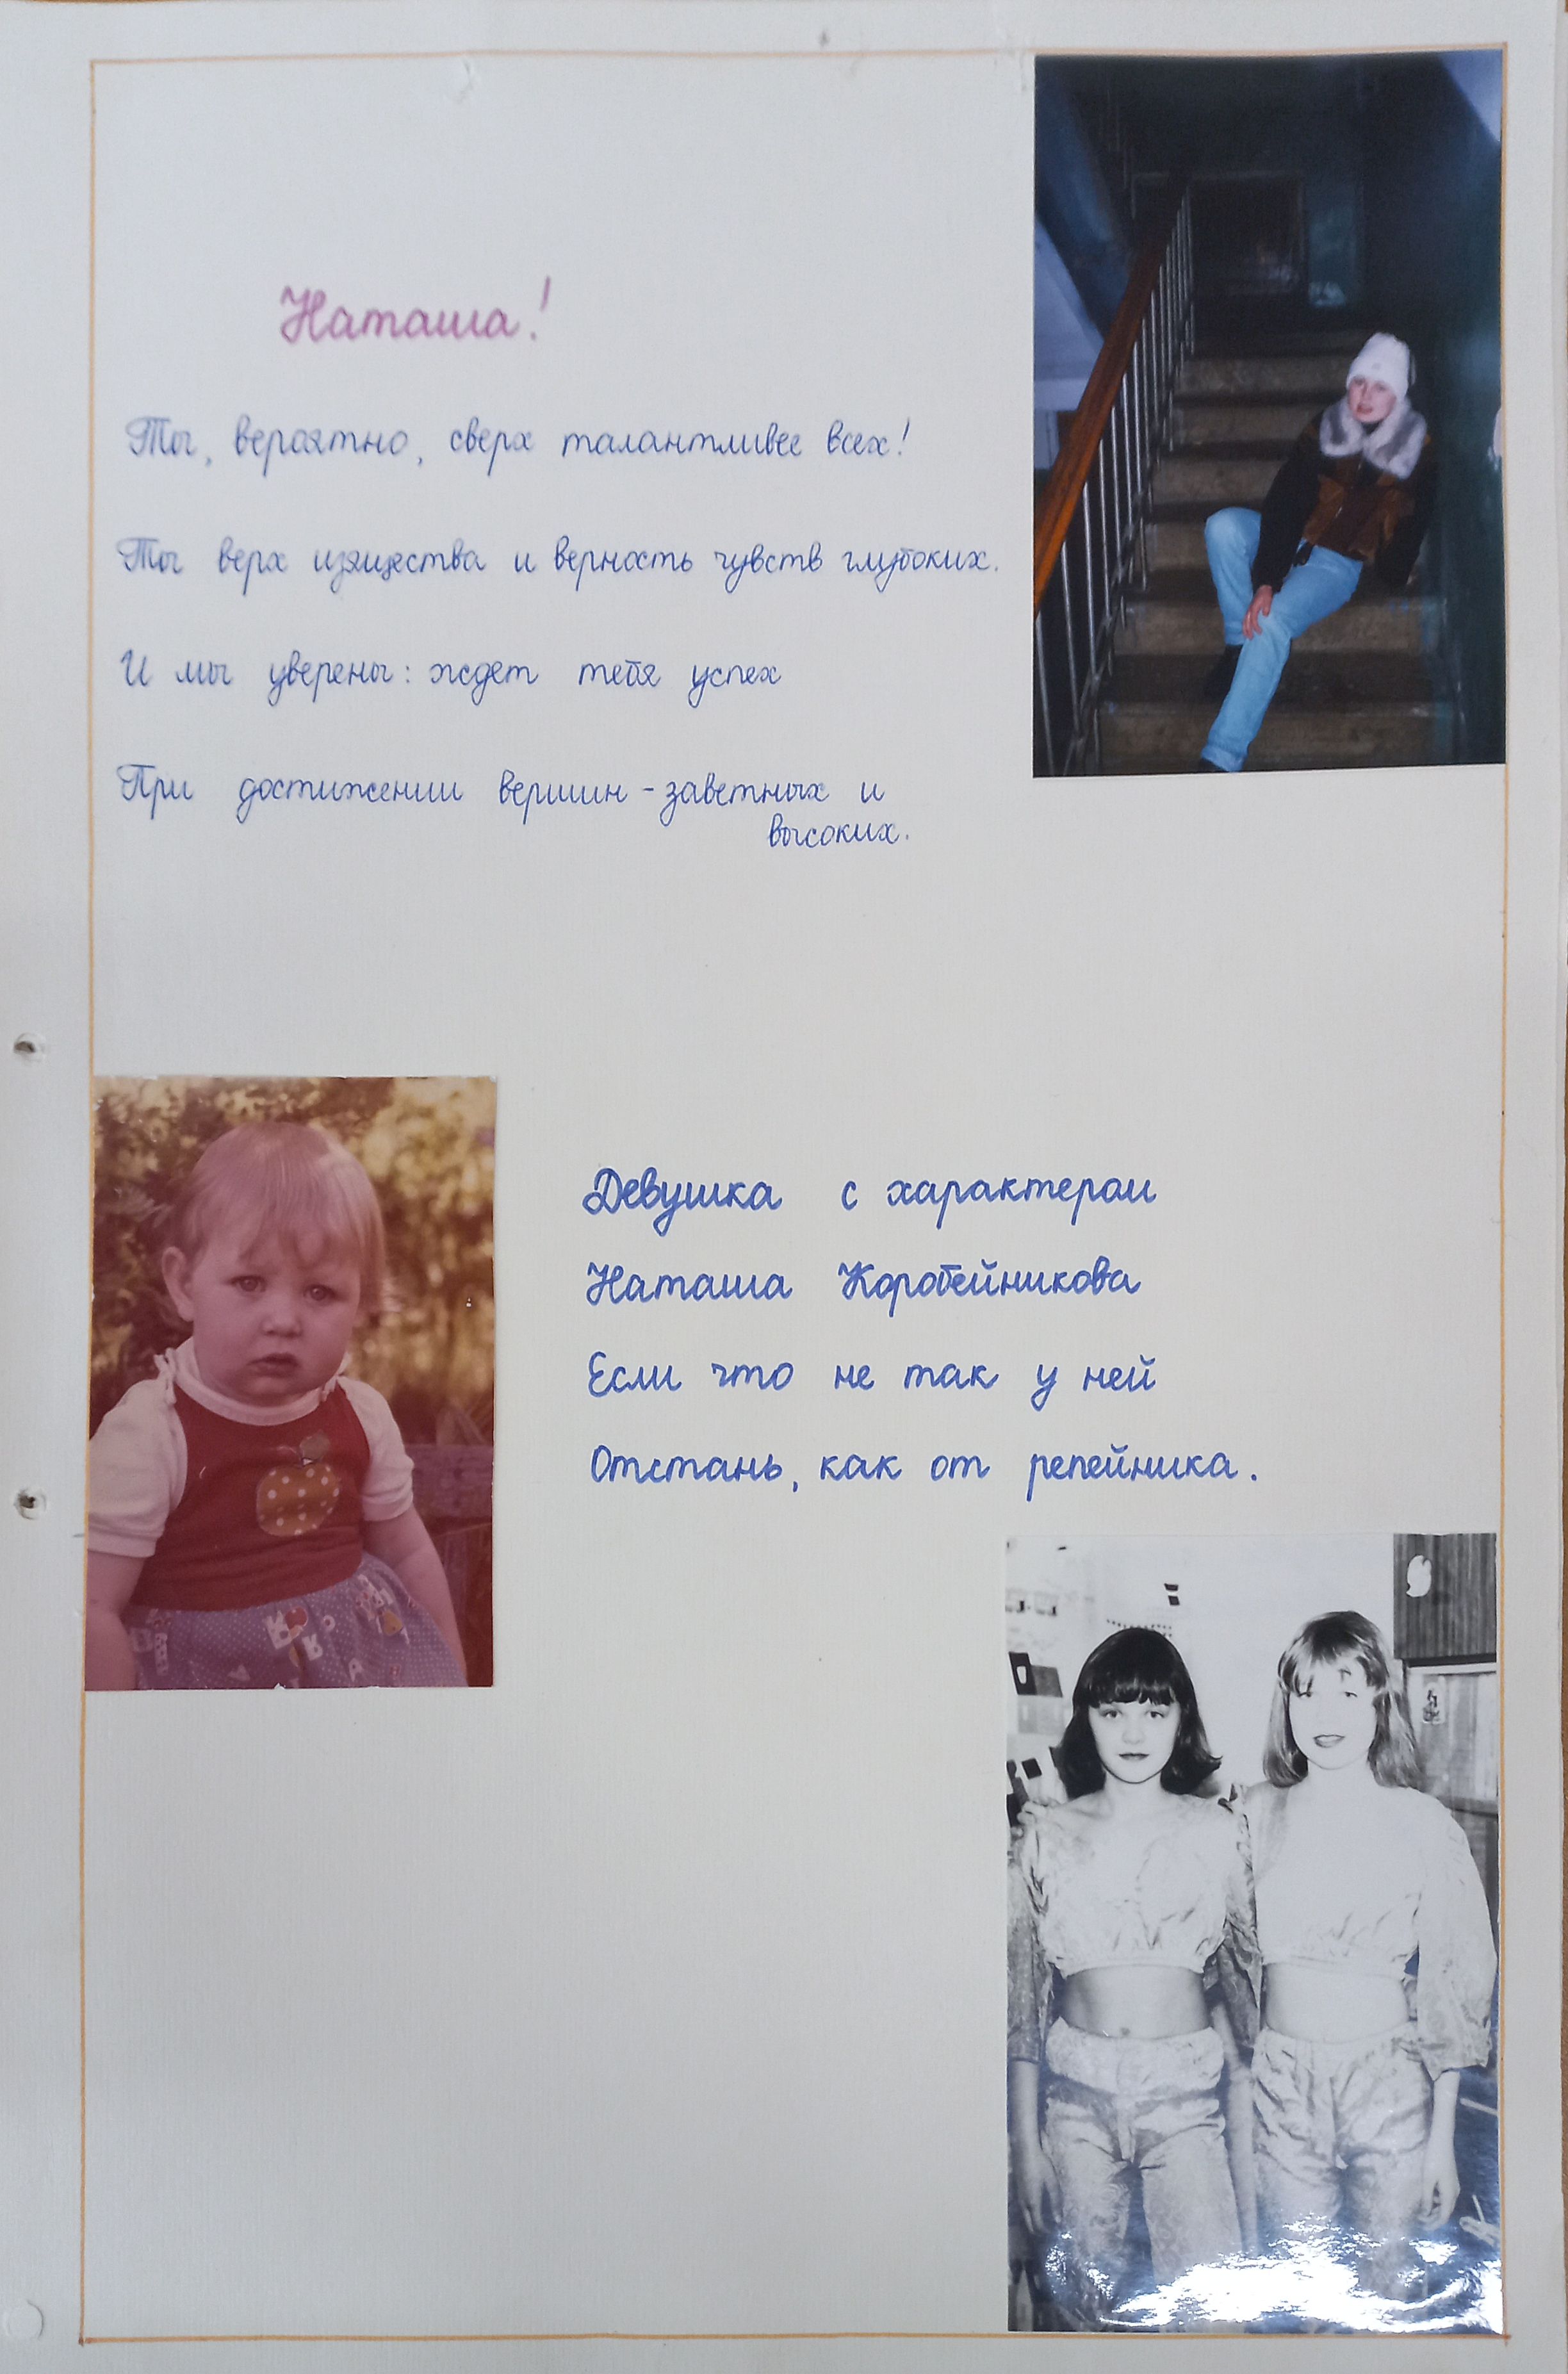 Наташа!
Ты, вероятно, сверх талантливее всех!
Ты верх изящества и верность чувств глубоких.
И мы уверены: ждет тебя успех
При достижении вершин - заветных и
высоких.
Девушка с характером
Наташа Коробейникова
Если что не так у ней
Отстань, как от репейника.